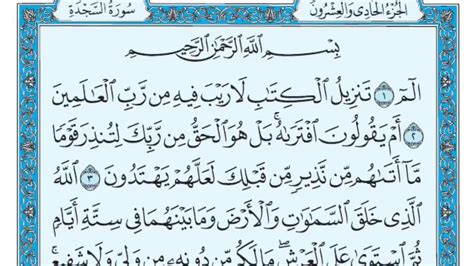 الجزء الحادى والعشرون
سورة السجدة
بِسْمِ اللَّهِ الرَّحْمَٰنِ الرَّحِيمِ
الٓمٓ ١ تَنزِيلُ الْكِتَٰبِ لَا رَيْبَ فِيهِ مِن رَّبِّ الْعَٰلَمِينَ
٢ أَمْ يَقُولُونَ افْتَرَىٰهُ ۚ بَلْ هُوَ الْحَقُّ مِن رَّبِّكَ لِتُنذِرَ قَوْمًا
مَّا أَتَىٰهُم مِّن نَّذِيرٍ مِّن قَبْلِكَ لَعَلَّهُمْ يَهْتَدُونَ ٣ اللَّهُ
الَّذِى خَلَقَ السَّمَٰوَٰتِ وَالْأَرْضَ وَمَا بَيْنَهُمَا فِى سِتَّةِ أَيَّامٍ
ثُمَّ اسْتَوَىٰ عَلَى الْعَرْشِ ۖ مَا لَكُم مِّن دُونِهِ مِن وَلِىٍّ وَلَا شَفِيعٍ ۚ